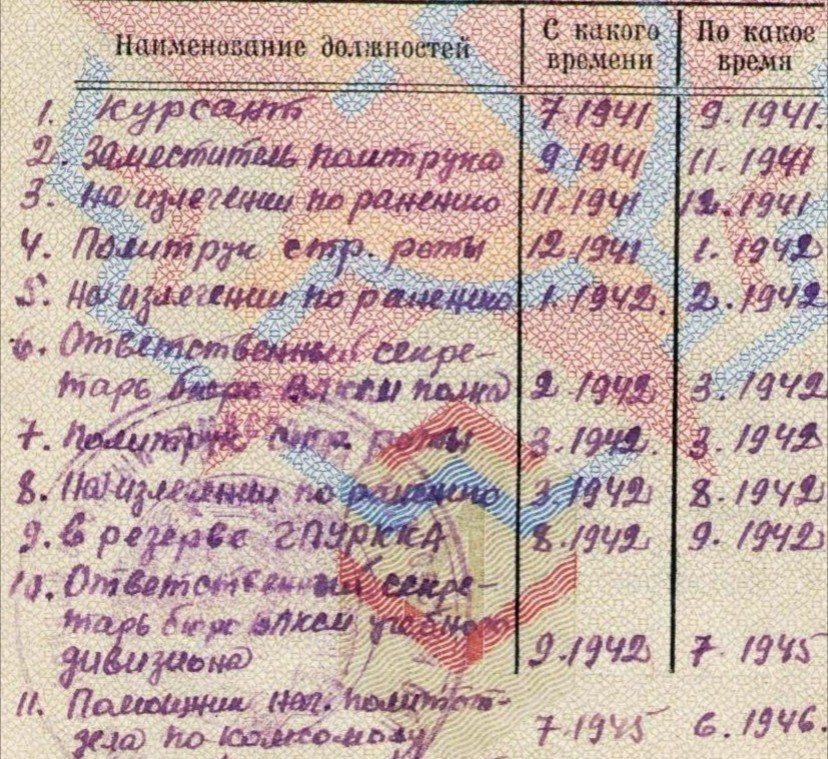 Наименование должностей С какого времени По какое время
1. Курсант 7.1941 9.1941.
2. Заместитель политрука 9.1941 11.1941
3. На излечении по ранению 11.1941 12.1941
4. Политрук стр. роты 12.1941 1.1942
5. На излечении по ранению 1.1942. 2.1942
6. Ответственный секре-
тарь бюро ВЛКСМ полка 2.1942 3.1942
7. Политрук стр. роты 3.1942. 3.1942
8. На излечении по ранению 3.1942 8.1942
9. В резерве ГПУРККА 8.1942 9.1942
10. Ответственный секре-
тарь бюро ВЛКСМ учебного
дивизиона 9.1942 7.1945
11. Помощник нач. политот-
дела по комсомолу 7.1945 6.1946.